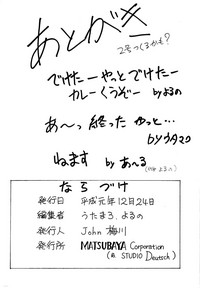 あとがき
2号つくるかも?
でけたーやっとでけたー
カレーくうぞー
byよるの
あ〜っ 終った やっと…
byウタマロ
ねます by あ〜る
なろづけ
発行日 平成元年12月24日
編集者 うたまろ、よるの
発行人 John 梅川
発行所 MATSUBAYA Corporation
STUDIO Deutsch)